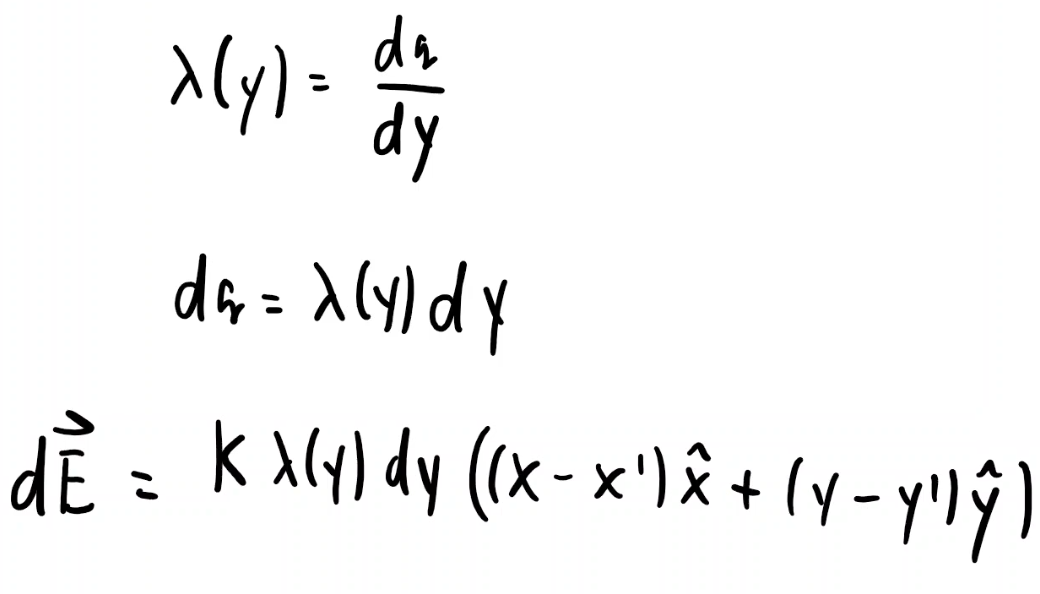 λ(y) = dq/dy
dq = λ(y) dy
dE⃗ = k λ(y) dy ((x - x') x̂ + (y - y') ŷ)